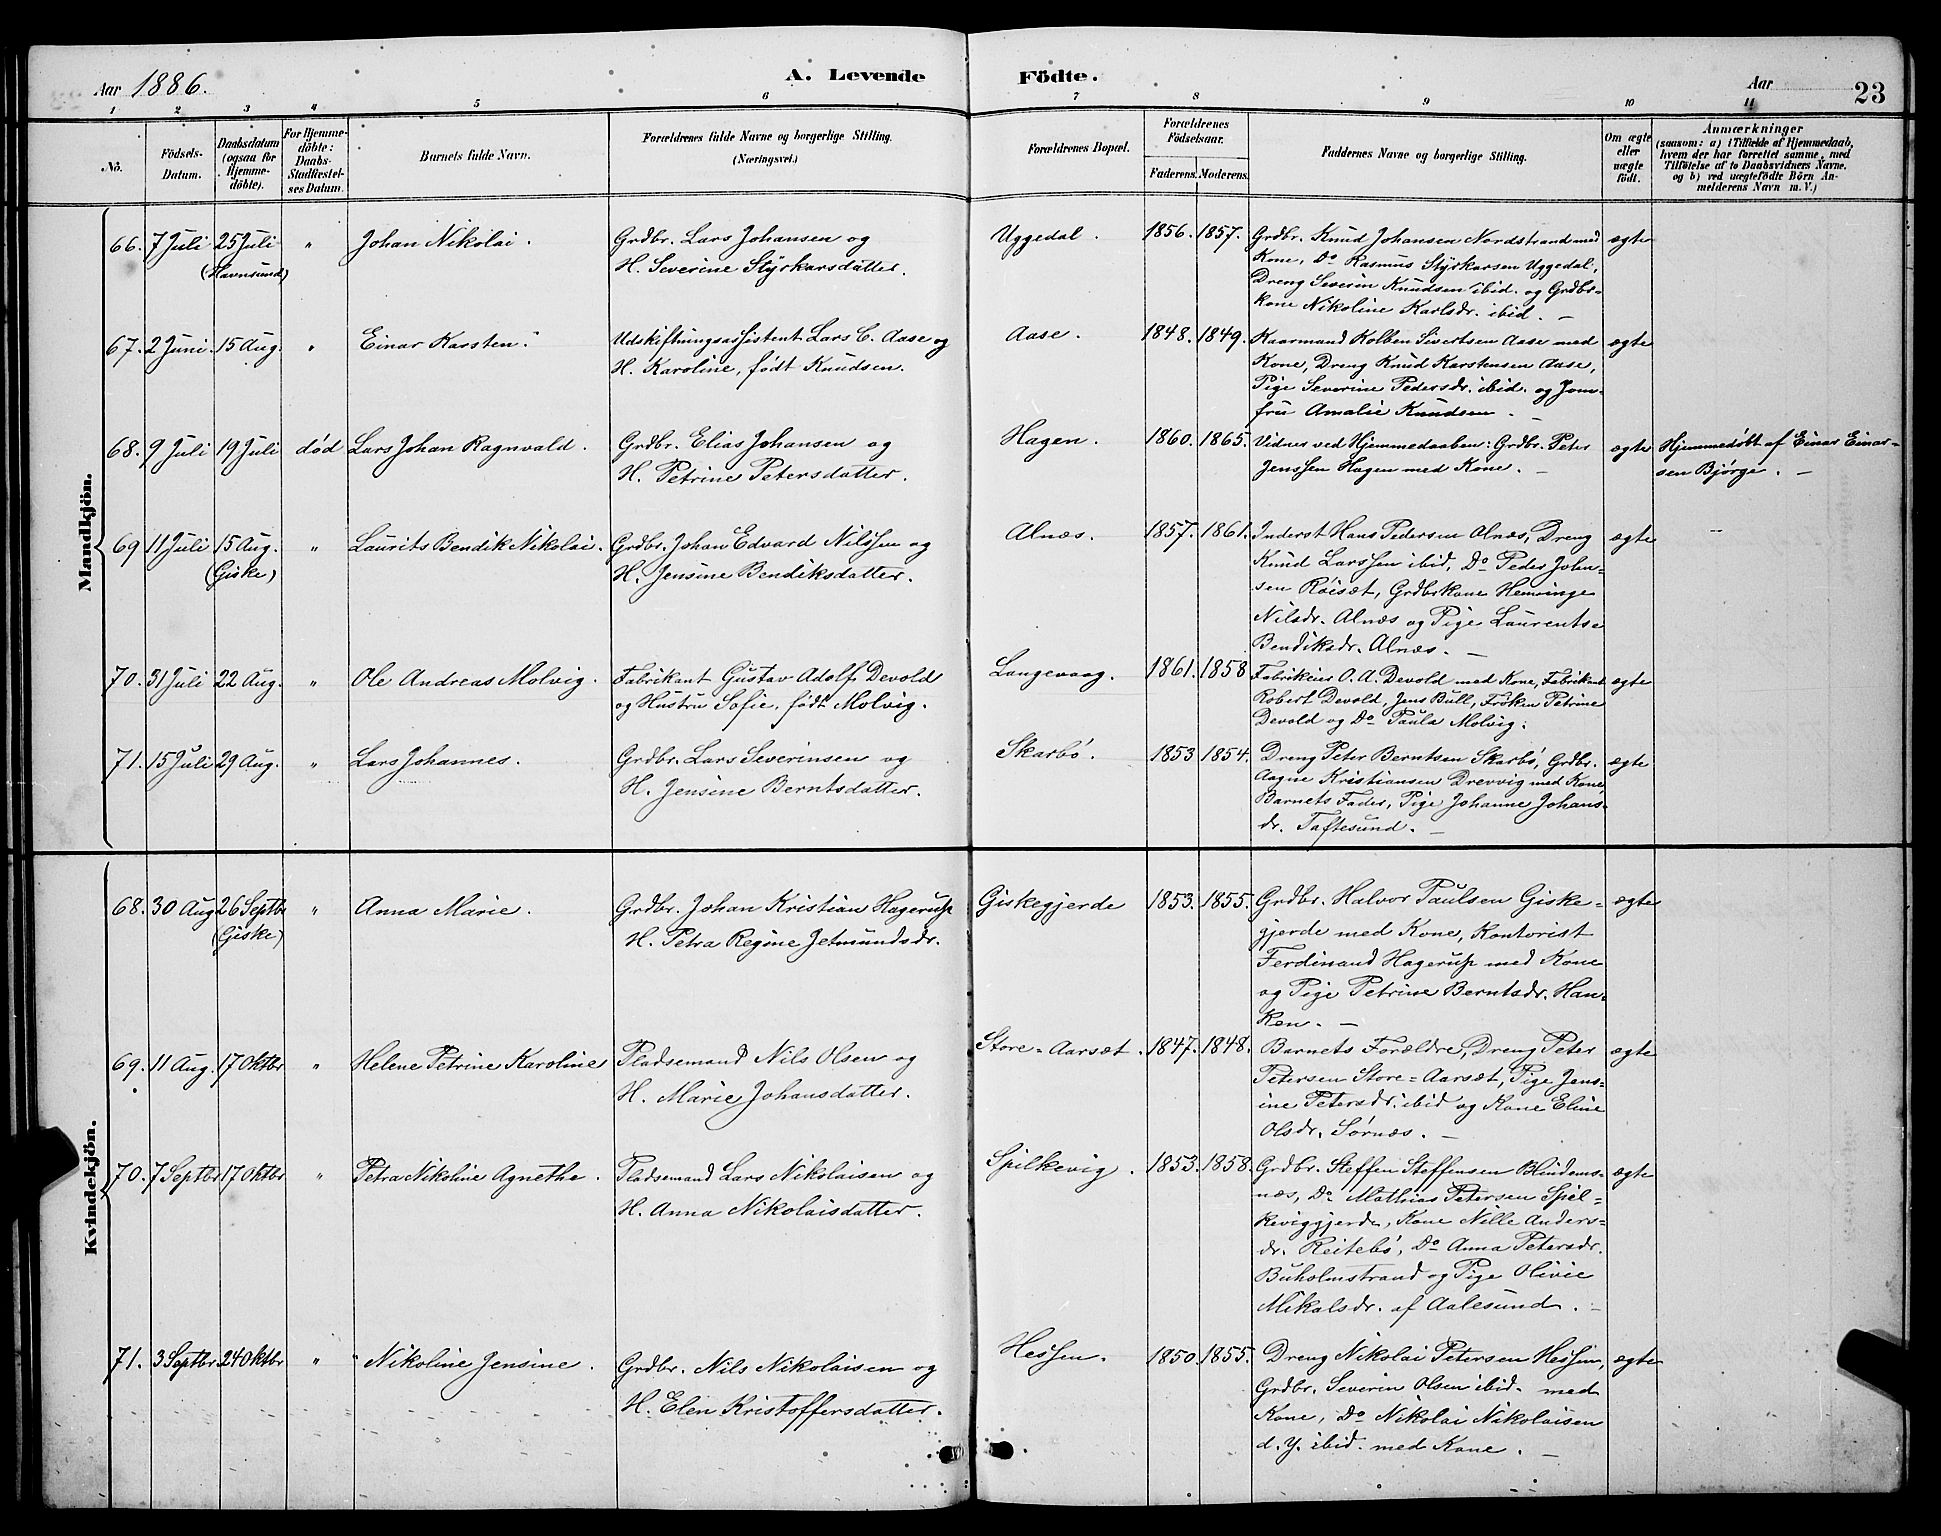 Aar 1886.
A. Levende Födte.
Aar
23
1 2 3 4 5 6 7 8 9 10 11
No.
Födsels-Datum.
Daabsdatum (ogsaa for Hjemmedöbte).
For Hjemmedöbte: Daabs-Stadfæstelses Datum.
Barnets fulde Navn.
Forældrenes fulde Navne og borgerlige Stilling.
(Næringsvei.)
Forældrenes Bopæl.
Forældrenes Födselsaar.
Faderens. Moderens.
Faddernes Navne og borgerlige Stilling.
Om ægte eller uægte födt.
Anmærkninger
(saasom: a) i Tilfælde af Hjemmedaab,
hvem der har forrettet samme, med
Tilföielse af to Daabsvidners Navne.
og b) ved uægtefödte Börn An-
melderens Navn m. V.)
Mandkjön.
66. 7 Juli 25 Juli (Havnsund) " Johan Nikolai. Grdbr. Lars Johansen og
H. Severine Styrkarsdatter.
Uggedal. 1856. 1857. Grdbr. Knud Johansen Nordstrand med
Kone, Do Rasmus Styrkarsen Uggedal,
Dreng Severin Knudsen ibid. og Grdbr-
kone Nikoline Karlsdr. ibid. –
ægte
67. 2 Juni. 15 Aug. " Einar Karsten. Udskiftningsassistent Lars C. Aase og
H. Karoline, født Knudsen.
Aase. 1848. 1849. Kaarmand Kolben Sivertsen Aase med
Kone, Dreng Knud Karstensen Aase,
Pige Severine Pedersdr. ibid. og Jom-
fru Amalie Knudsen. –
ægte
68. 9 Juli 19 Juli død Lars Johan Ragnvald. Grdbr. Elias Johansen og
H. Petrine Petersdatter.
Hagen. 1860. 1865. Vidner ved Hjemmedaaben: Grdbr. Peter
Jenssen Hagen med Kone. –
ægte Hjemmedøbt af Einar Einar-
sen Bjørge. –
69 11 Juli 15 Aug. (Giske) " Laurits Bendik Nikolai. Grdbr. Johan Edvard Nilssen og
H. Jensine Bendiksdatter.
Alnæs. 1857. 1861. Inderst Hans Pedersen Alnæs, Dreng
Knud Larssen ibid, Do Peder Johan-
sen Röisæt, Grdbrkone Henvinge
Nilsdr. Alnæs og Pige Laurentse
Bendiksdr. Alnæs. –
ægte –
70. 31 Juli 22 Aug. " Ole Andreas Molvig. Fabrikant Gustav Adolf Devold
og Hustru Sofie, født Molvig.
Langevaag. 1861. 1858 Fabrikeier O. A. Devold med Kone, Fabrikant
Robert Devold, Jens Bull, Fröken Petrine
Devold og Do Paula Molvig.
ægte
71. 15 Juli 29 Aug. " Lars Johannes. Grdbr. Lars Severinsen og
H. Jensine Berntsdatter.
Skarbö. 1853 1854. Dreng Peter Berntsen Skarbö, Grdbr.
Aagne Kristiansen Drevvig med Kone,
Barnets Fader, Pige Johanne Johans-
dr. Taftesund. –
ægte
Kvindekjön.
68. 30 Aug 26 Septbr (Giske) " Anna Marie. Grdbr. Johan Kristian Hagerup
H. Petra Regine Jetmundsdr.
Giskegjerde 1853. 1855. Grdbr. Halvor Paulsen Giske-
gjerde med Kone, Kontorist
Ferdinand Hagerup med Kone
og Pige Petrine Berntsdr. Han-
ken. –
ægte
69. 11 Aug. 17 Oktbr " Helene Petrine Karoline Pladsemand Nils Olsen og
H. Marie Johansdatter.
Store-Aarsæt. 1847. 1848. Barnets Forældre, Dreng Peter
Petersen Store-Aarsæt, Pige Jens-
ine Petersdr. ibid og Kone Eline
Olsdr. Sørnæs. –
ægte
70. 7 Septbr 17 Oktbr " Petra Nikoline Agnethe. Pladsemand Lars Nikolaisen og
H. Anna Nikolaisdatter.
Spilkevig. 1853. 1858. Grdbr. Steffen Steffensen Blindems-
næs, Do Mathias Petersen Spil-
keviggjerde, Kone Nille Anders-
dr. Reitebö, Do Anna Petersdr.
Buholmstrand og Pige Olivie
Mikalsdr. af Aalesund. –
ægte
71. 3 Septbr 24 Oktbr " Nikoline Jensine. Grdbr. Nils Nikolaisen og
H. Elen Kristoffersdatter.
Hessen. 1850. 1855. Dreng Nikolai Petersen Hessen,
Grdbr. Severin Olsen ibid. med
Kone, Do Nikolai Nikolaisen
d. y. ibid. med Kone. –
ægte